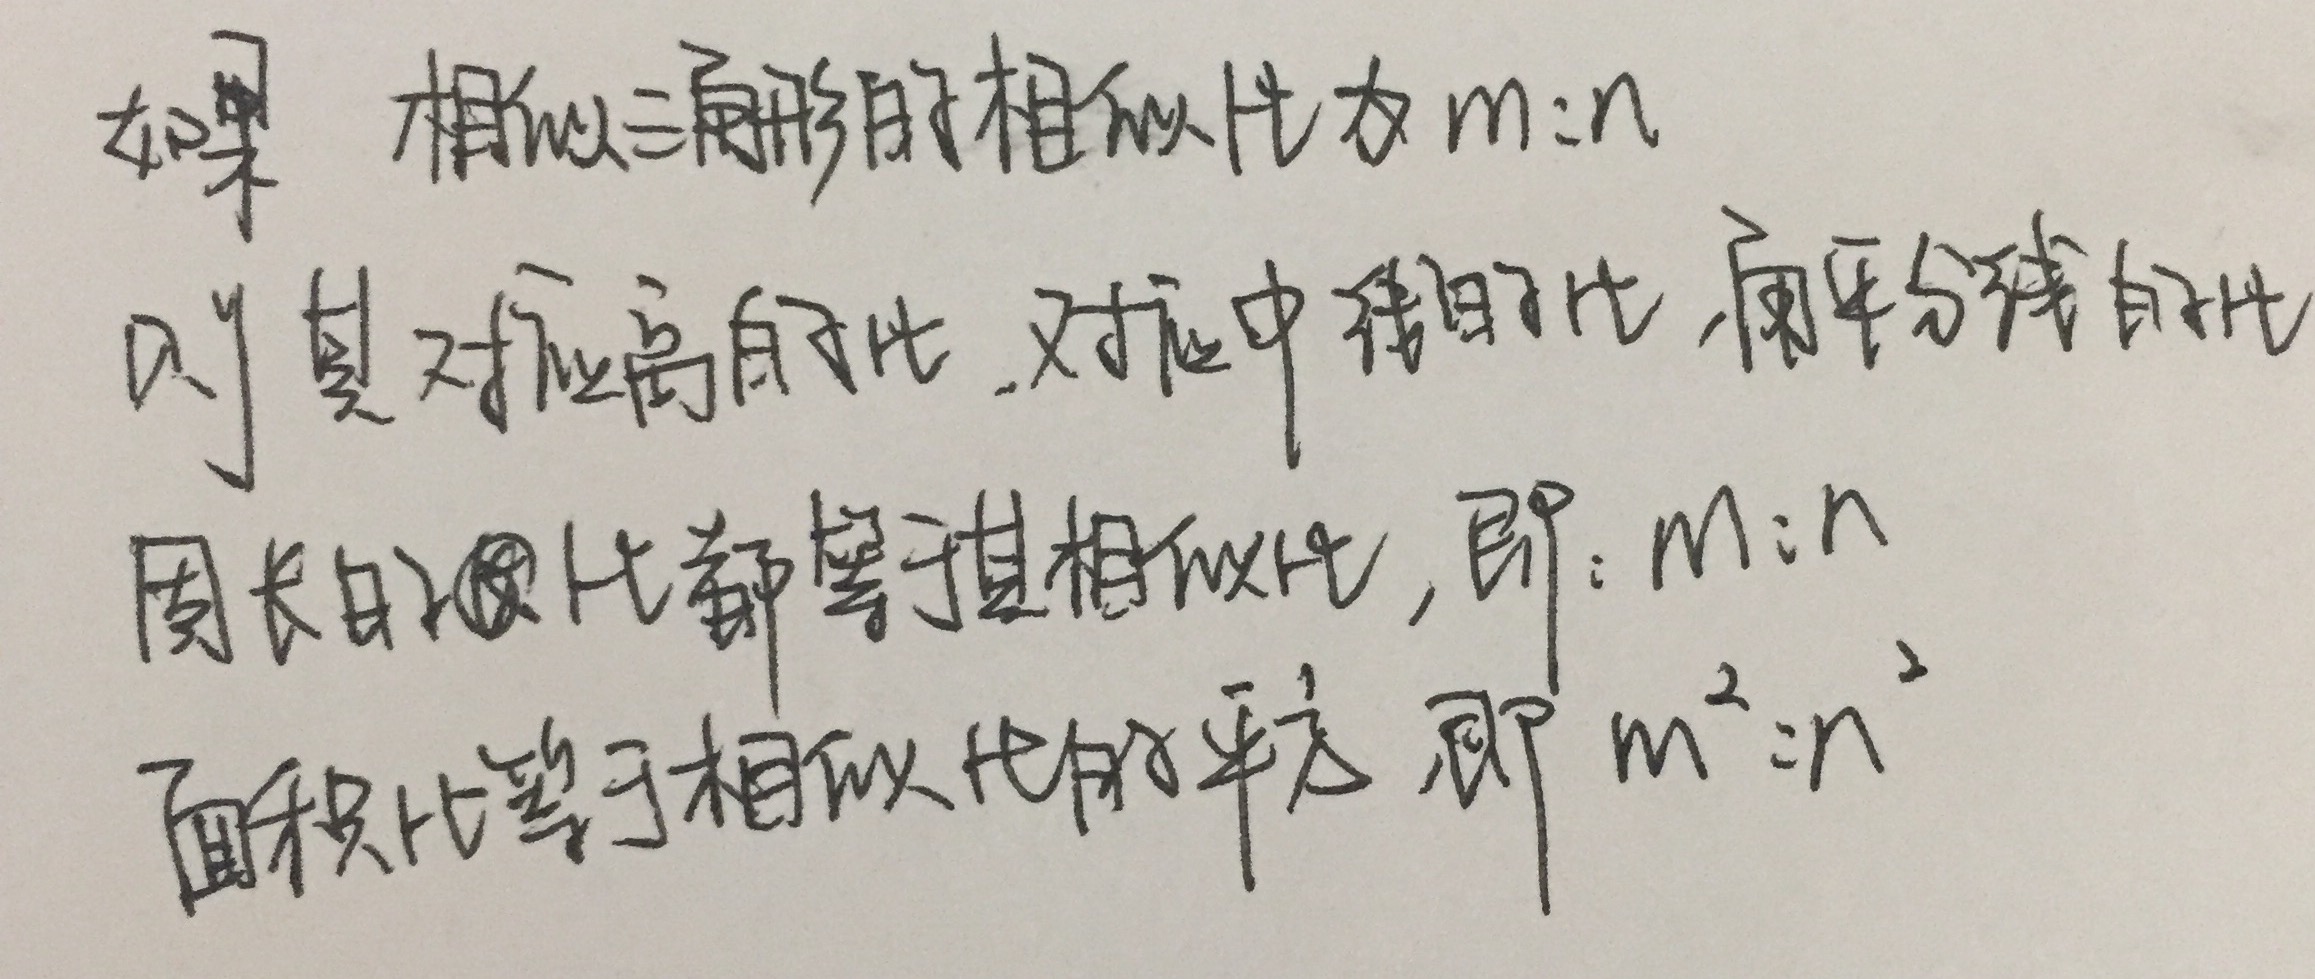 如果 相似三角形的相似比为m:n
则其对应高的比、对应中线的比、角平分线的比
周长的比都等于其相似比,即:m:n
面积比等于相似比的平方 即 m²:n²